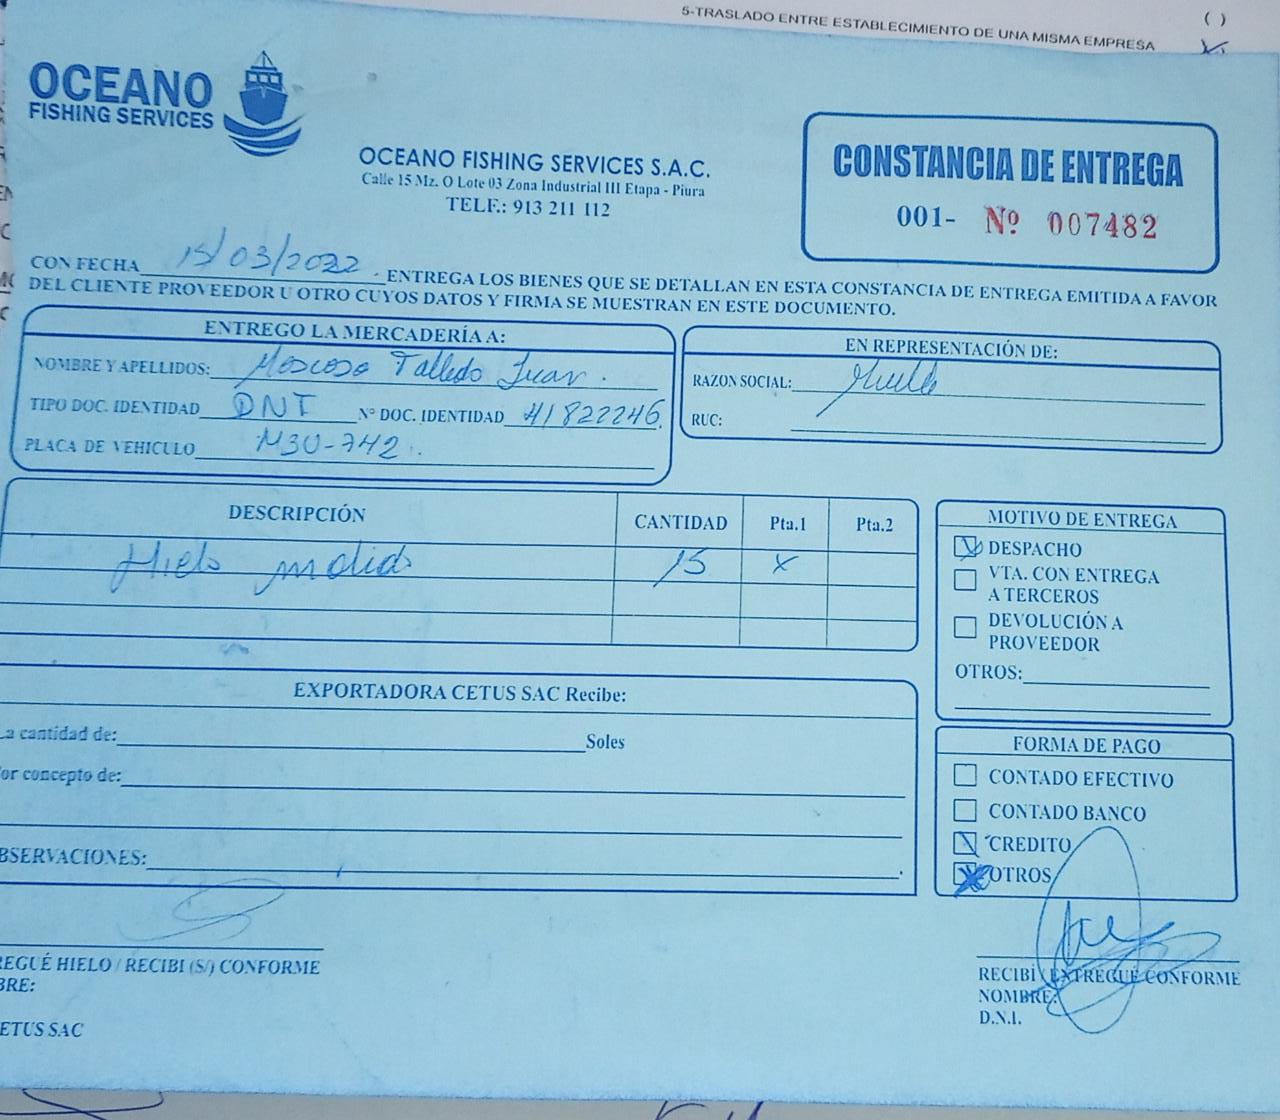 5-TRASLADO ENTRE ESTABLECIMIENTO DE UNA MISMA EMPRESA ( )
OCEANO
FISHING SERVICES
OCEANO FISHING SERVICES S.A.C.
Calle 15 Mz. O Lote 03 Zona Industrial III Etapa - Piura
TELF.: 913 211 112
CONSTANCIA DE ENTREGA
001- Nº 007482
CON FECHA 15/03/2022. ENTREGA LOS BIENES QUE SE DETALLAN EN ESTA CONSTANCIA DE ENTREGA EMITIDA A FAVOR
DEL CLIENTE PROVEEDOR U OTRO CUYOS DATOS Y FIRMA SE MUESTRAN EN ESTE DOCUMENTO.
ENTREGO LA MERCADERÍA A:
NOMBRE Y APELLIDOS: Moscoso Talledo Juan.
TIPO DOC. IDENTIDAD DNI Nº DOC. IDENTIDAD 41822246
PLACA DE VEHICULO M3U-742.
EN REPRESENTACIÓN DE:
RAZON SOCIAL:
RUC:
DESCRIPCIÓN CANTIDAD Pta.1 Pta.2
Hielo molido 15 x
MOTIVO DE ENTREGA
DESPACHO
VTA. CON ENTREGA
A TERCEROS
DEVOLUCIÓN A
PROVEEDOR
OTROS:
EXPORTADORA CETUS SAC Recibe:
La cantidad de: Soles
or concepto de:
BSERVACIONES:
FORMA DE PAGO
CONTADO EFECTIVO
CONTADO BANCO
CREDITO
OTROS
REGUÉ HIELO / RECIBI (S/) CONFORME
BRE:
ETUS SAC
RECIBÍ / ENTREGUÉ CONFORME
NOMBRE:
D.N.I.